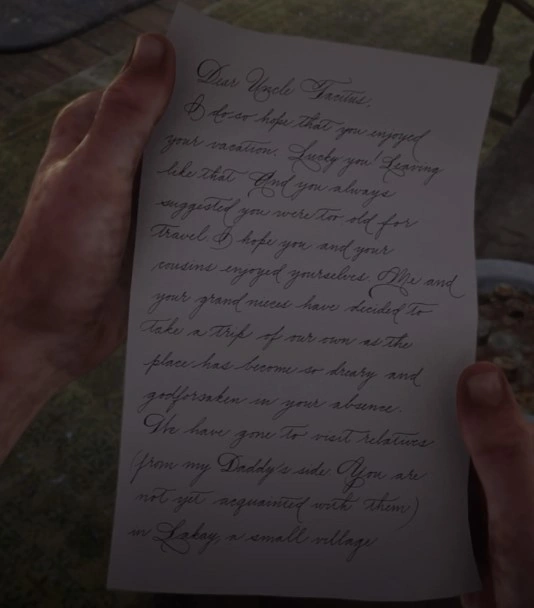 Dear Uncle Tacitus,
I do so hope that you enjoyed
your vacation. Lucky you! Leaving
like that. And you always
suggested you were too old for
travel. I hope you and your
cousins enjoyed yourselves. Me and
your grand nieces have decided to
take a trip of our own as the
place has become so dreary and
godforsaken in your absence.
We have gone to visit relatives
(from my Daddy's side. You are
not yet acquainted with them)
in Lakay, a small village